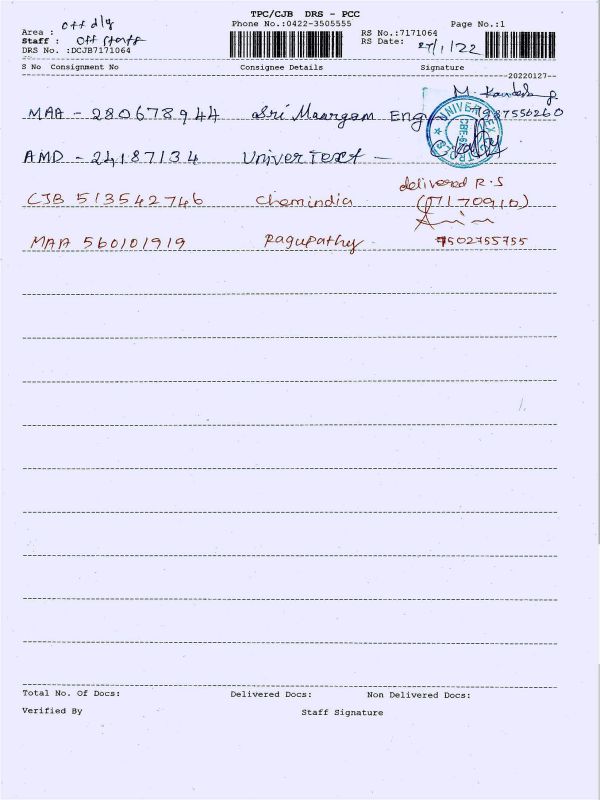 TPC/CJB DRS - PCC
Area : Off dly Phone No.:0422-3505555 Page No.:1
Staff : Off staff RS No.:7171064
DRS No. :DCJB7171064 RS Date: 27/1/22
S No Consignment No Consignee Details Signature
--20220127--
MAA - 280678944 Sri Maargam Engg
AMD - 24187134 Univer Text -
delivered R.S
CJB 513542746 Chemindia (7170910)
MAA 560101919 Pagupathy 7502755755
Total No. Of Docs: Delivered Docs: Non Delivered Docs:
Verified By Staff Signature